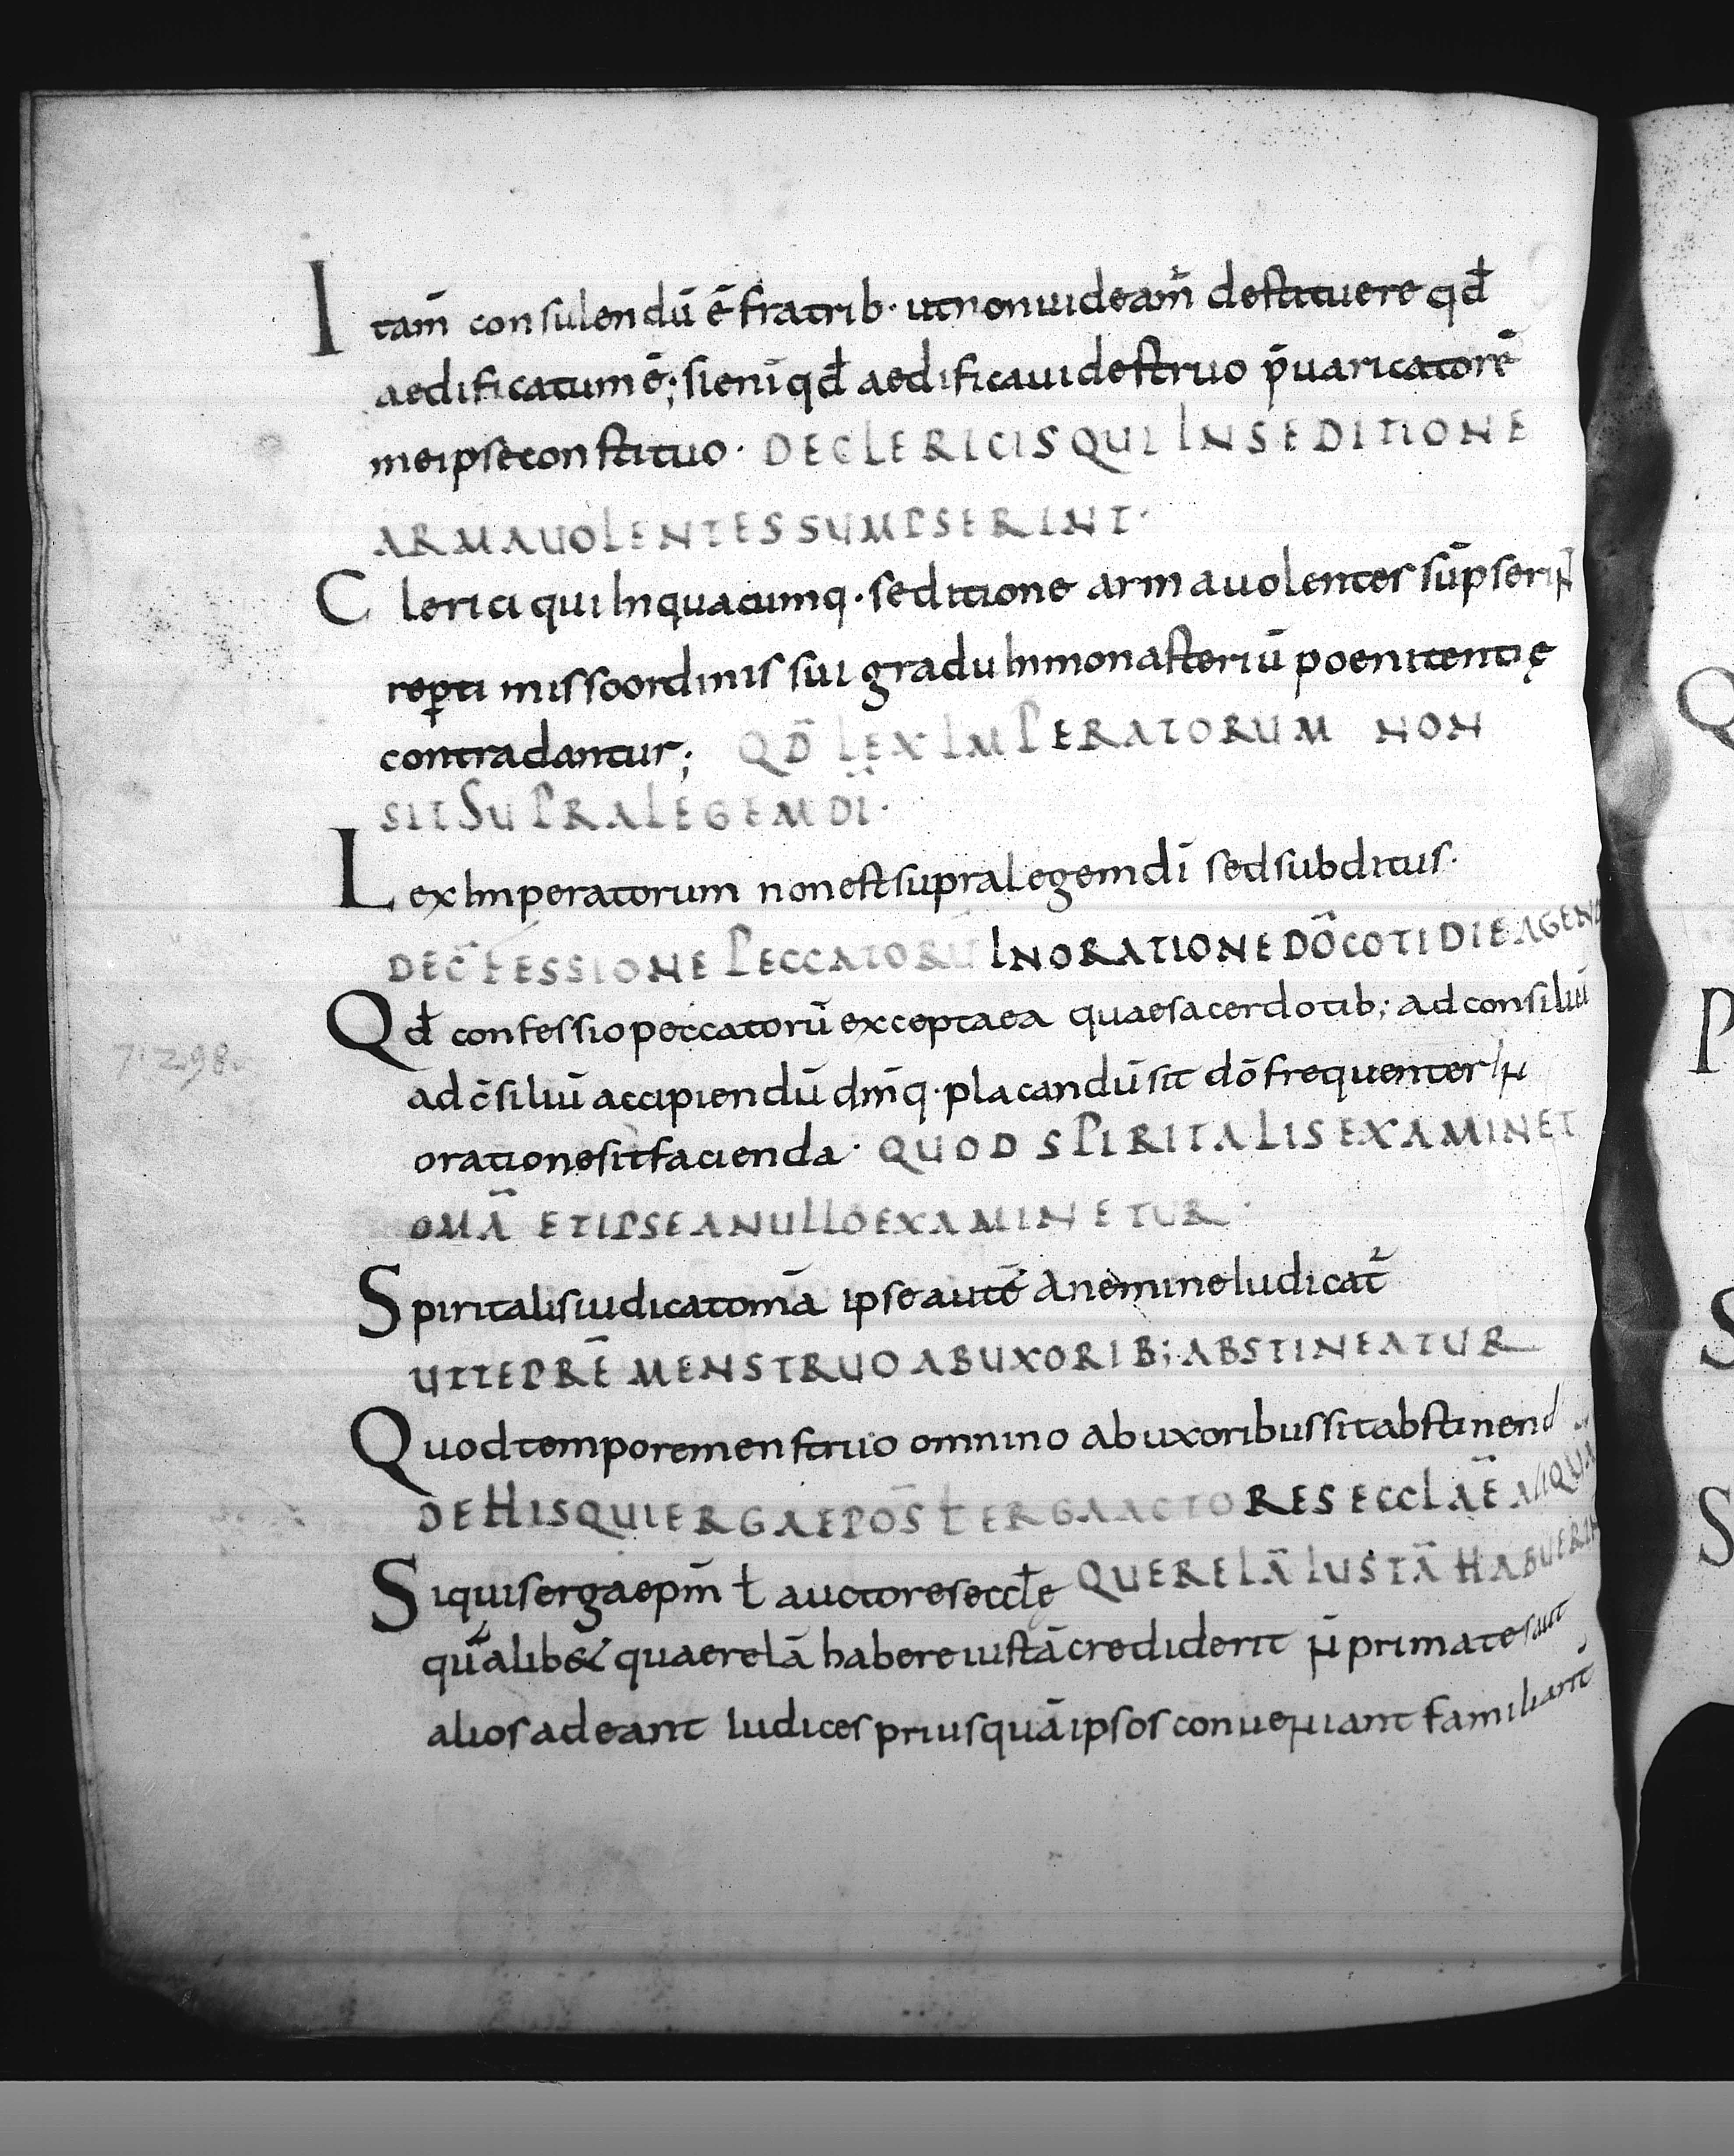 Itam̄ consulendū ē fratrib· ut non uideam̄ destituere qđ
aedificatum ē; si enī qđ aedificaui destruo p̄uaricatorē
me ipse constituo· DE CLERICIS QUI IN SEDITIONE
ARMA UOLENTES SUMPSERINT·
Clerici qui in quacumq· seditione arma uolenter sūpserint
rep̱ti misso ordinis sui gradu in monasteriū poenitentię
contradantur; QD̄ LEX IMPERATORUM NON
SIT SUPRA LEGEM DĪ·
Lex Imperatorum non est supra legem dī sed subditus·
DE C̄FESSIONE PECCATORŪ IN ORATIONE DŌ COTIDIE AGEN
Qđ confessio peccatorū excepta ea quae sacerdotib; ad consiliū
ad c̄siliū accipiendū dm̄q· placandū sit dō frequenter IN
oratione sit facienda· QUOD SPIRITALIS EXAMINET
OMĀ ET IPSE A NULLO EXAMINETUR·
Spiritalis iudicat omā ipse autē A nemine Iudicat̄
UT TEPRĒ MENSTRUO AB UXORIB; ABSTINEATUR
Quod tempore menstruo omnino ab uxoribus sit abstinend
DE HIS QUI ERGA EPOS̄ ł ERGA ACTORES ECCLAĒ ALIQUĀ
Si quis erga epm̄ ł auctores eccłę QUERELĀ IUSTĀ HABUERIN
qūalib& quaerelā habere iustā crediderit N̄ primates aut
alios adeant Iudices priusquā ipsos conueniant familiarit̄